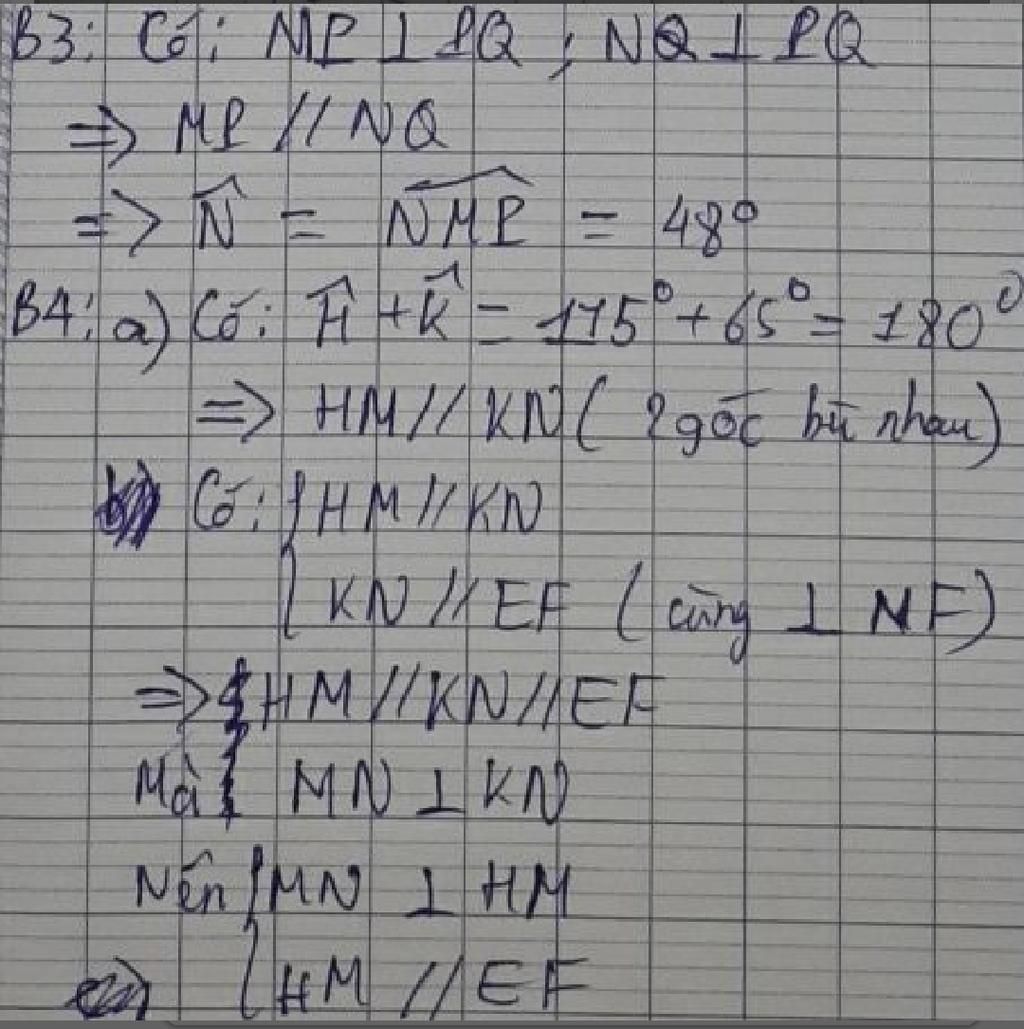 B3: Có: MP ⊥ PQ ; NQ ⊥ PQ
=> MP // NQ
=> N̂ = \widehat{NMP} = 48°
B4: a) Có: Ĥ + K̂ = 115° + 65° = 180°
=> HM // KN ( 2 góc bù nhau)
b) Có: { HM // KN
{ KN // EF ( cùng ⊥ NF)
=> HM // KN // EF
Mà MN ⊥ KN
Nên { MN ⊥ HM
{ HM // EF